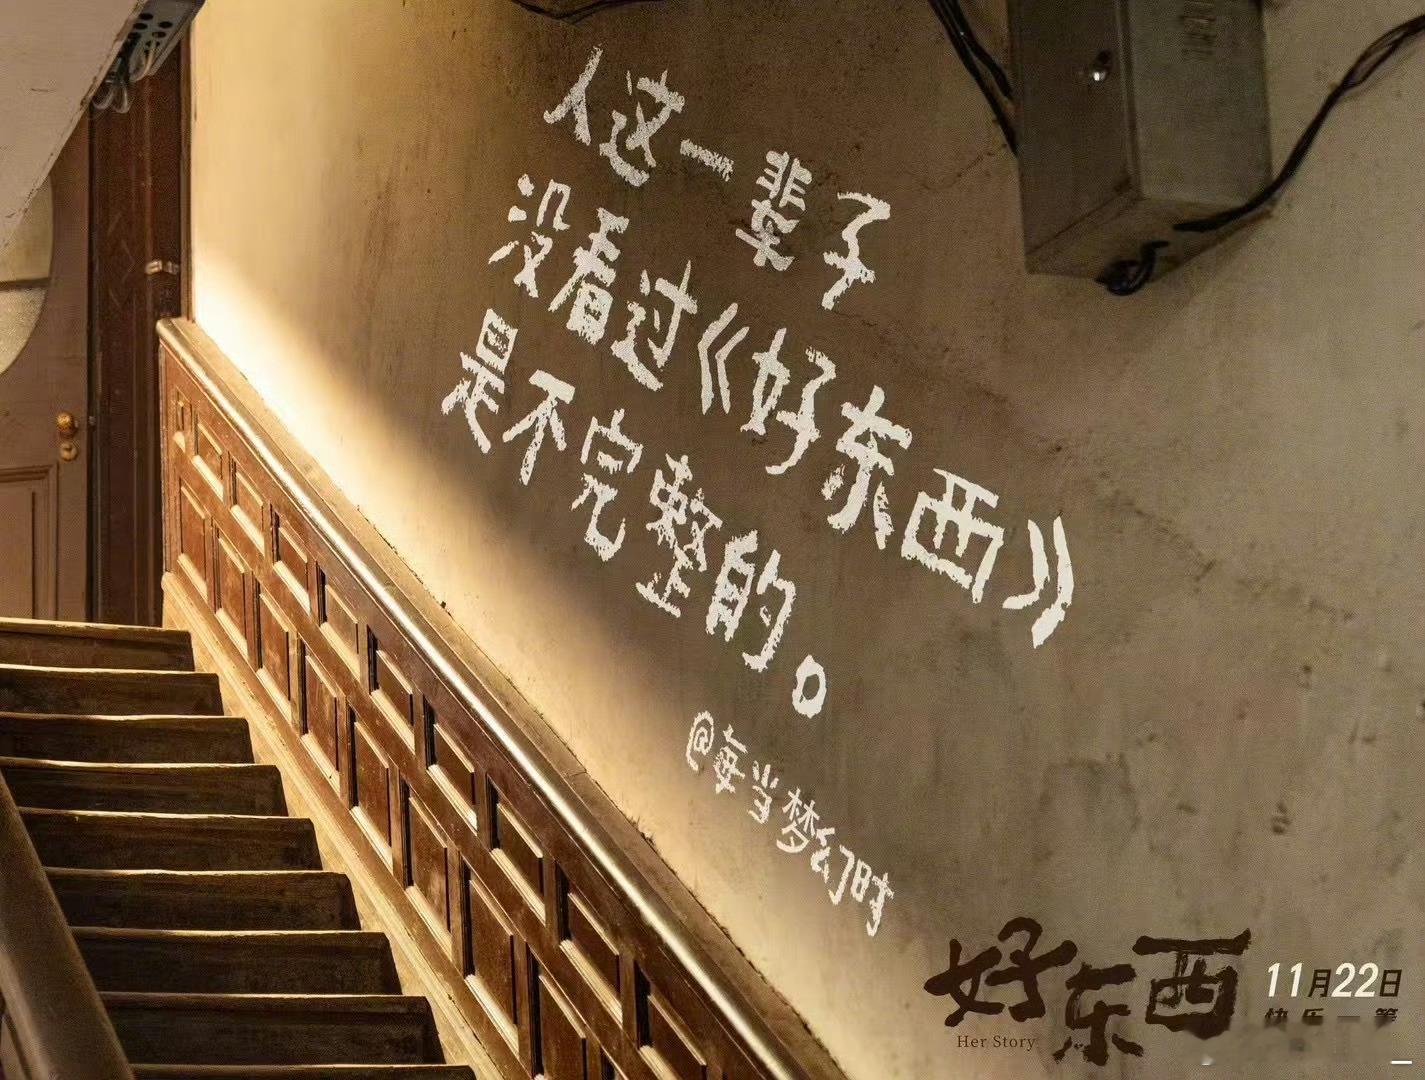 人这一辈子
没看过《好东西》
是不完整的。
@每当梦幻时
好东西
Her Story
11月22日